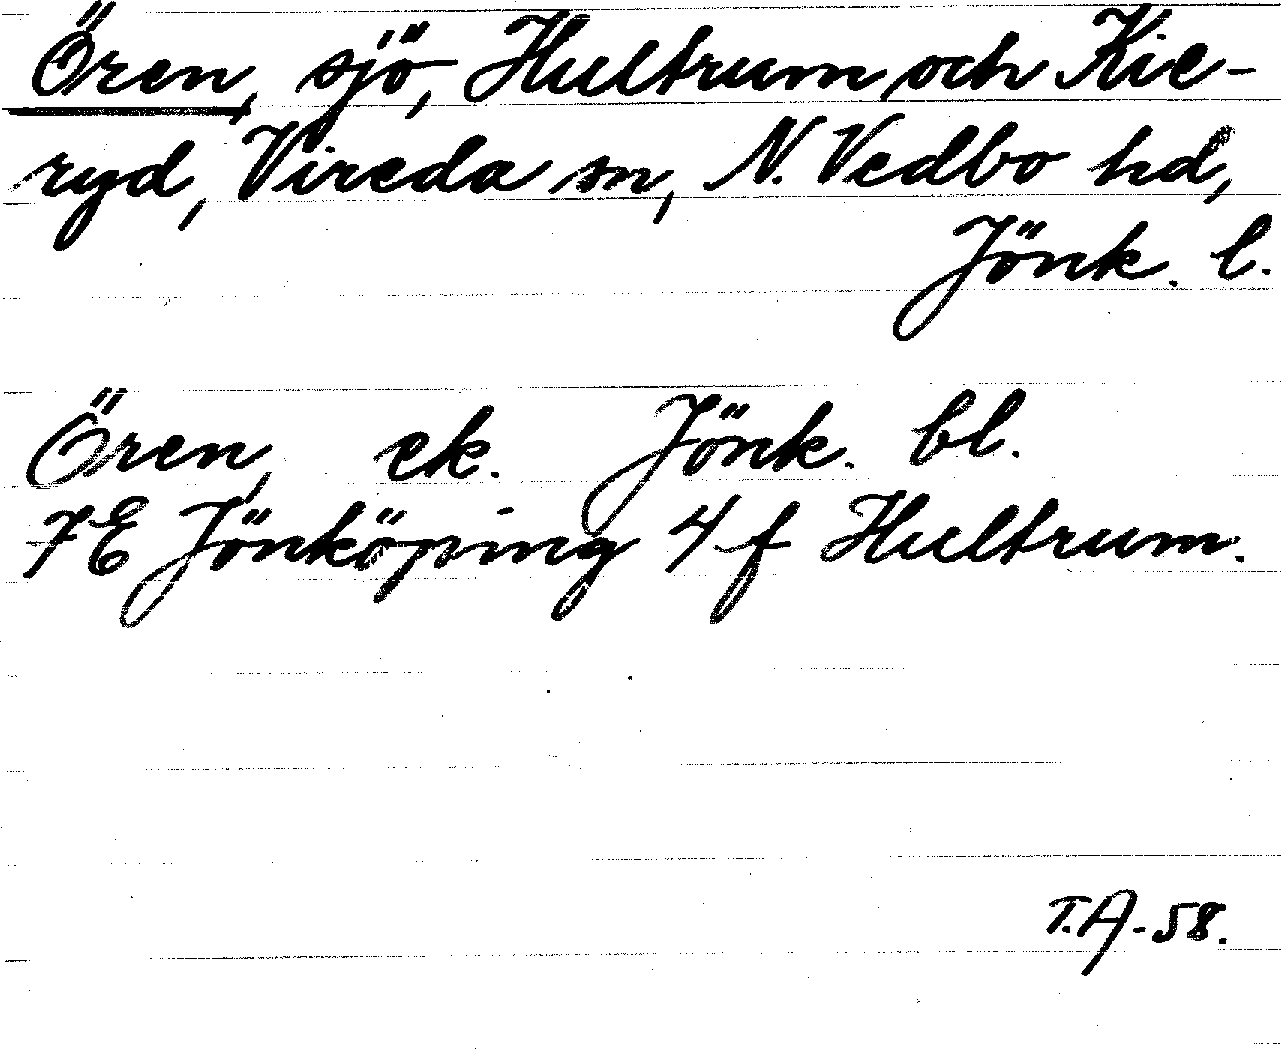 Ören, sjö, Hultrum och Kie-
ryd, Vireda sn, N. Vedbo hd,
Jönk. l.
Ören, ek. Jönk. bl.
7E Jönköping 4f Hultrum.
T.A-58.